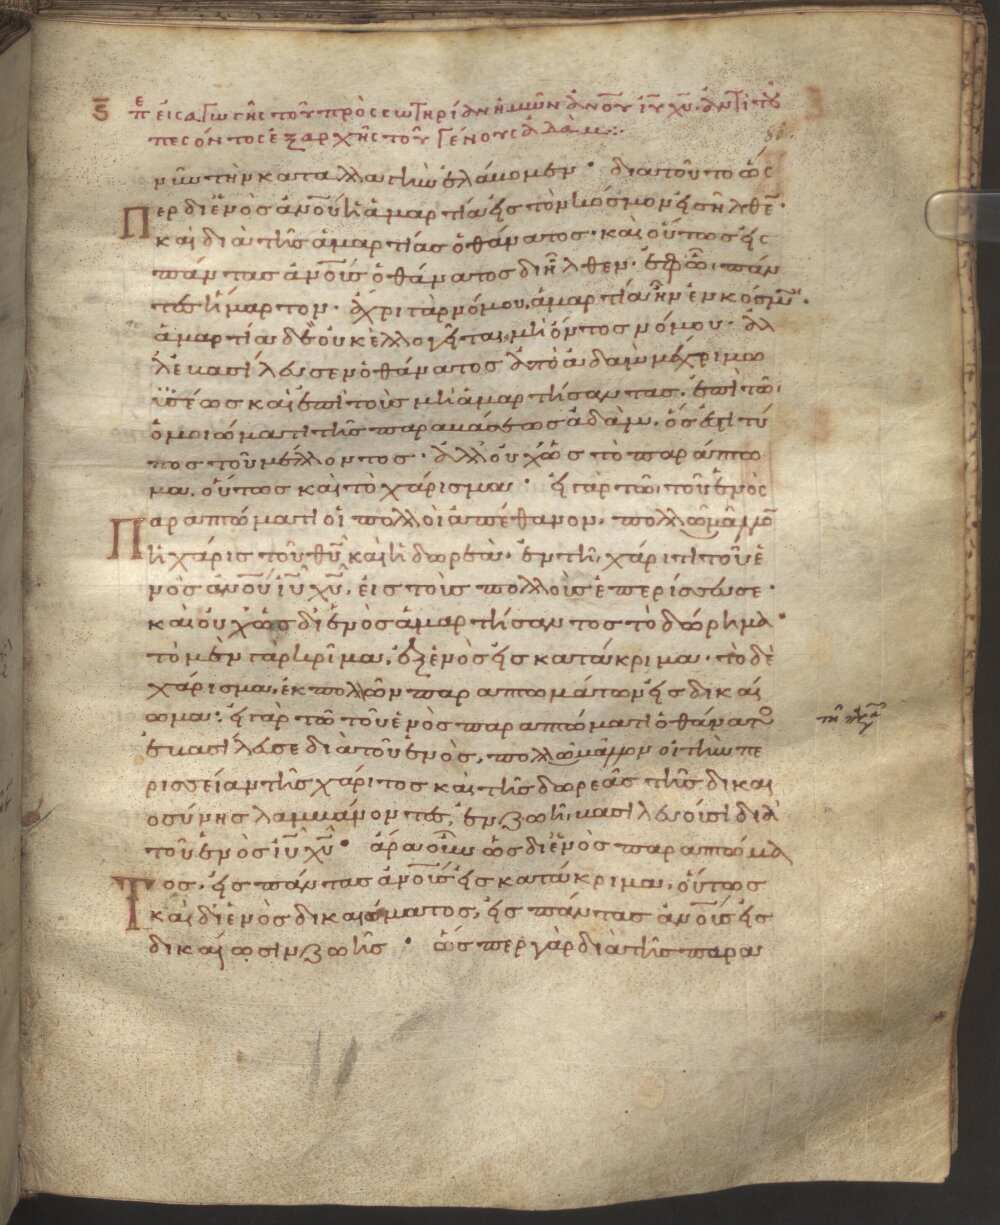 ϛ̄ πε εἰσαγωγῆς τοῦ πρὸς σωτηρίαν ἡμῶν ἀνου ιυ χυ ἀντὶ τοῦ
πεσόντος ἐξ ἀρχῆς τοῦ γένους ἀδάμ
νῦν τὴν καταλλαγὴν ἐλάβομεν · διατοῦτο ὡς
Περ διἑνὸς ἀνου ἡ ἁμαρτία εἰς τὸν κόσμον εἰσῆλθε ·
καὶ διὰ τῆς ἁμαρτίας ὁ θάνατος · καὶ οὕτως εἰς
πάντας ἀνους ὁ θάνατος διῆλθεν · ἐφ ὧ πάν
τες ἥμαρτον · ἄχρι γὰρ νόμου, ἁμαρτία ἦν ἐν κόσμω ·
ἁμαρτία δὲ οὐκ ἐλλογεῖται μὴ ὄντος νόμου · ἀλ
λ ἐβασίλευσεν ὁ θάνατος ἀπὸ ἀδὰμ μέχρι μω
ϋσέως καὶ ἐπὶ τοὺς μὴ ἁμαρτήσαντας, ἐπὶ τῶ
ὁμοιώματι τῆς παραβάσεως ἀδὰμ, ὅς ἐστι τύ
πος τοῦ μέλλοντος · ἀλλ οὐχ ὡς τὸ παράπτω
μα, οὕτως καὶ τὸ χάρισμα · εἰ γὰρ τῶ τοῦ ἑνὸς
Παραπτώματι οἱ πολλοὶ ἀπέθανον, πολλῶ μᾶλλον
ἡ χάρις τοῦ θυ καὶ ἡ δωρεὰ, ἐν τῆ χάριτι τοῦ ἑ
νὸς ἀνου ιυ χυ, εἰς τοὺς πολλοὺς ἐπερίσσευσε ·
καὶ οὐχ ὡς δι ἑνὸς ἁμαρτήσαντος τὸ δώρημα ·
τὸ μὲν γὰρ κρῖμα, ἐξ ἑνὸς εἰς κατάκριμα · τὸ δὲ
χάρισμα, ἐκ πολλῶν παραπτωμάτων εἰς δικαί
ωμα · εἰ γὰρ τῶ τοῦ ἑνὸς παραπτώματι ὁ θάνατος
ἐβασίλευσε διὰ τοῦ ἑνὸς, πολλῶ μᾶλλον οἱ τὴν πε
ρισσείαν τῆς χάριτος καὶ τῆς δωρεᾶς τῆς δικαι
οσύνης λαμβάνοντες, ἐν ζωῆ βασιλεύουσι διὰ
τοῦ ἑνὸς ιυ χυ · ἄρα οὖν ὡς δι ἑνὸς παραπτώμα
Τος, εἰς πάντας ἀνους εἰς κατάκριμα, οὕτως
καὶ δι ἑνὸς δικαιώματος, εἰς πάντας ἀνους εἰς
δικαίωσιν ζωῆς · ὥσπερ γὰρ διὰ τῆς παρα